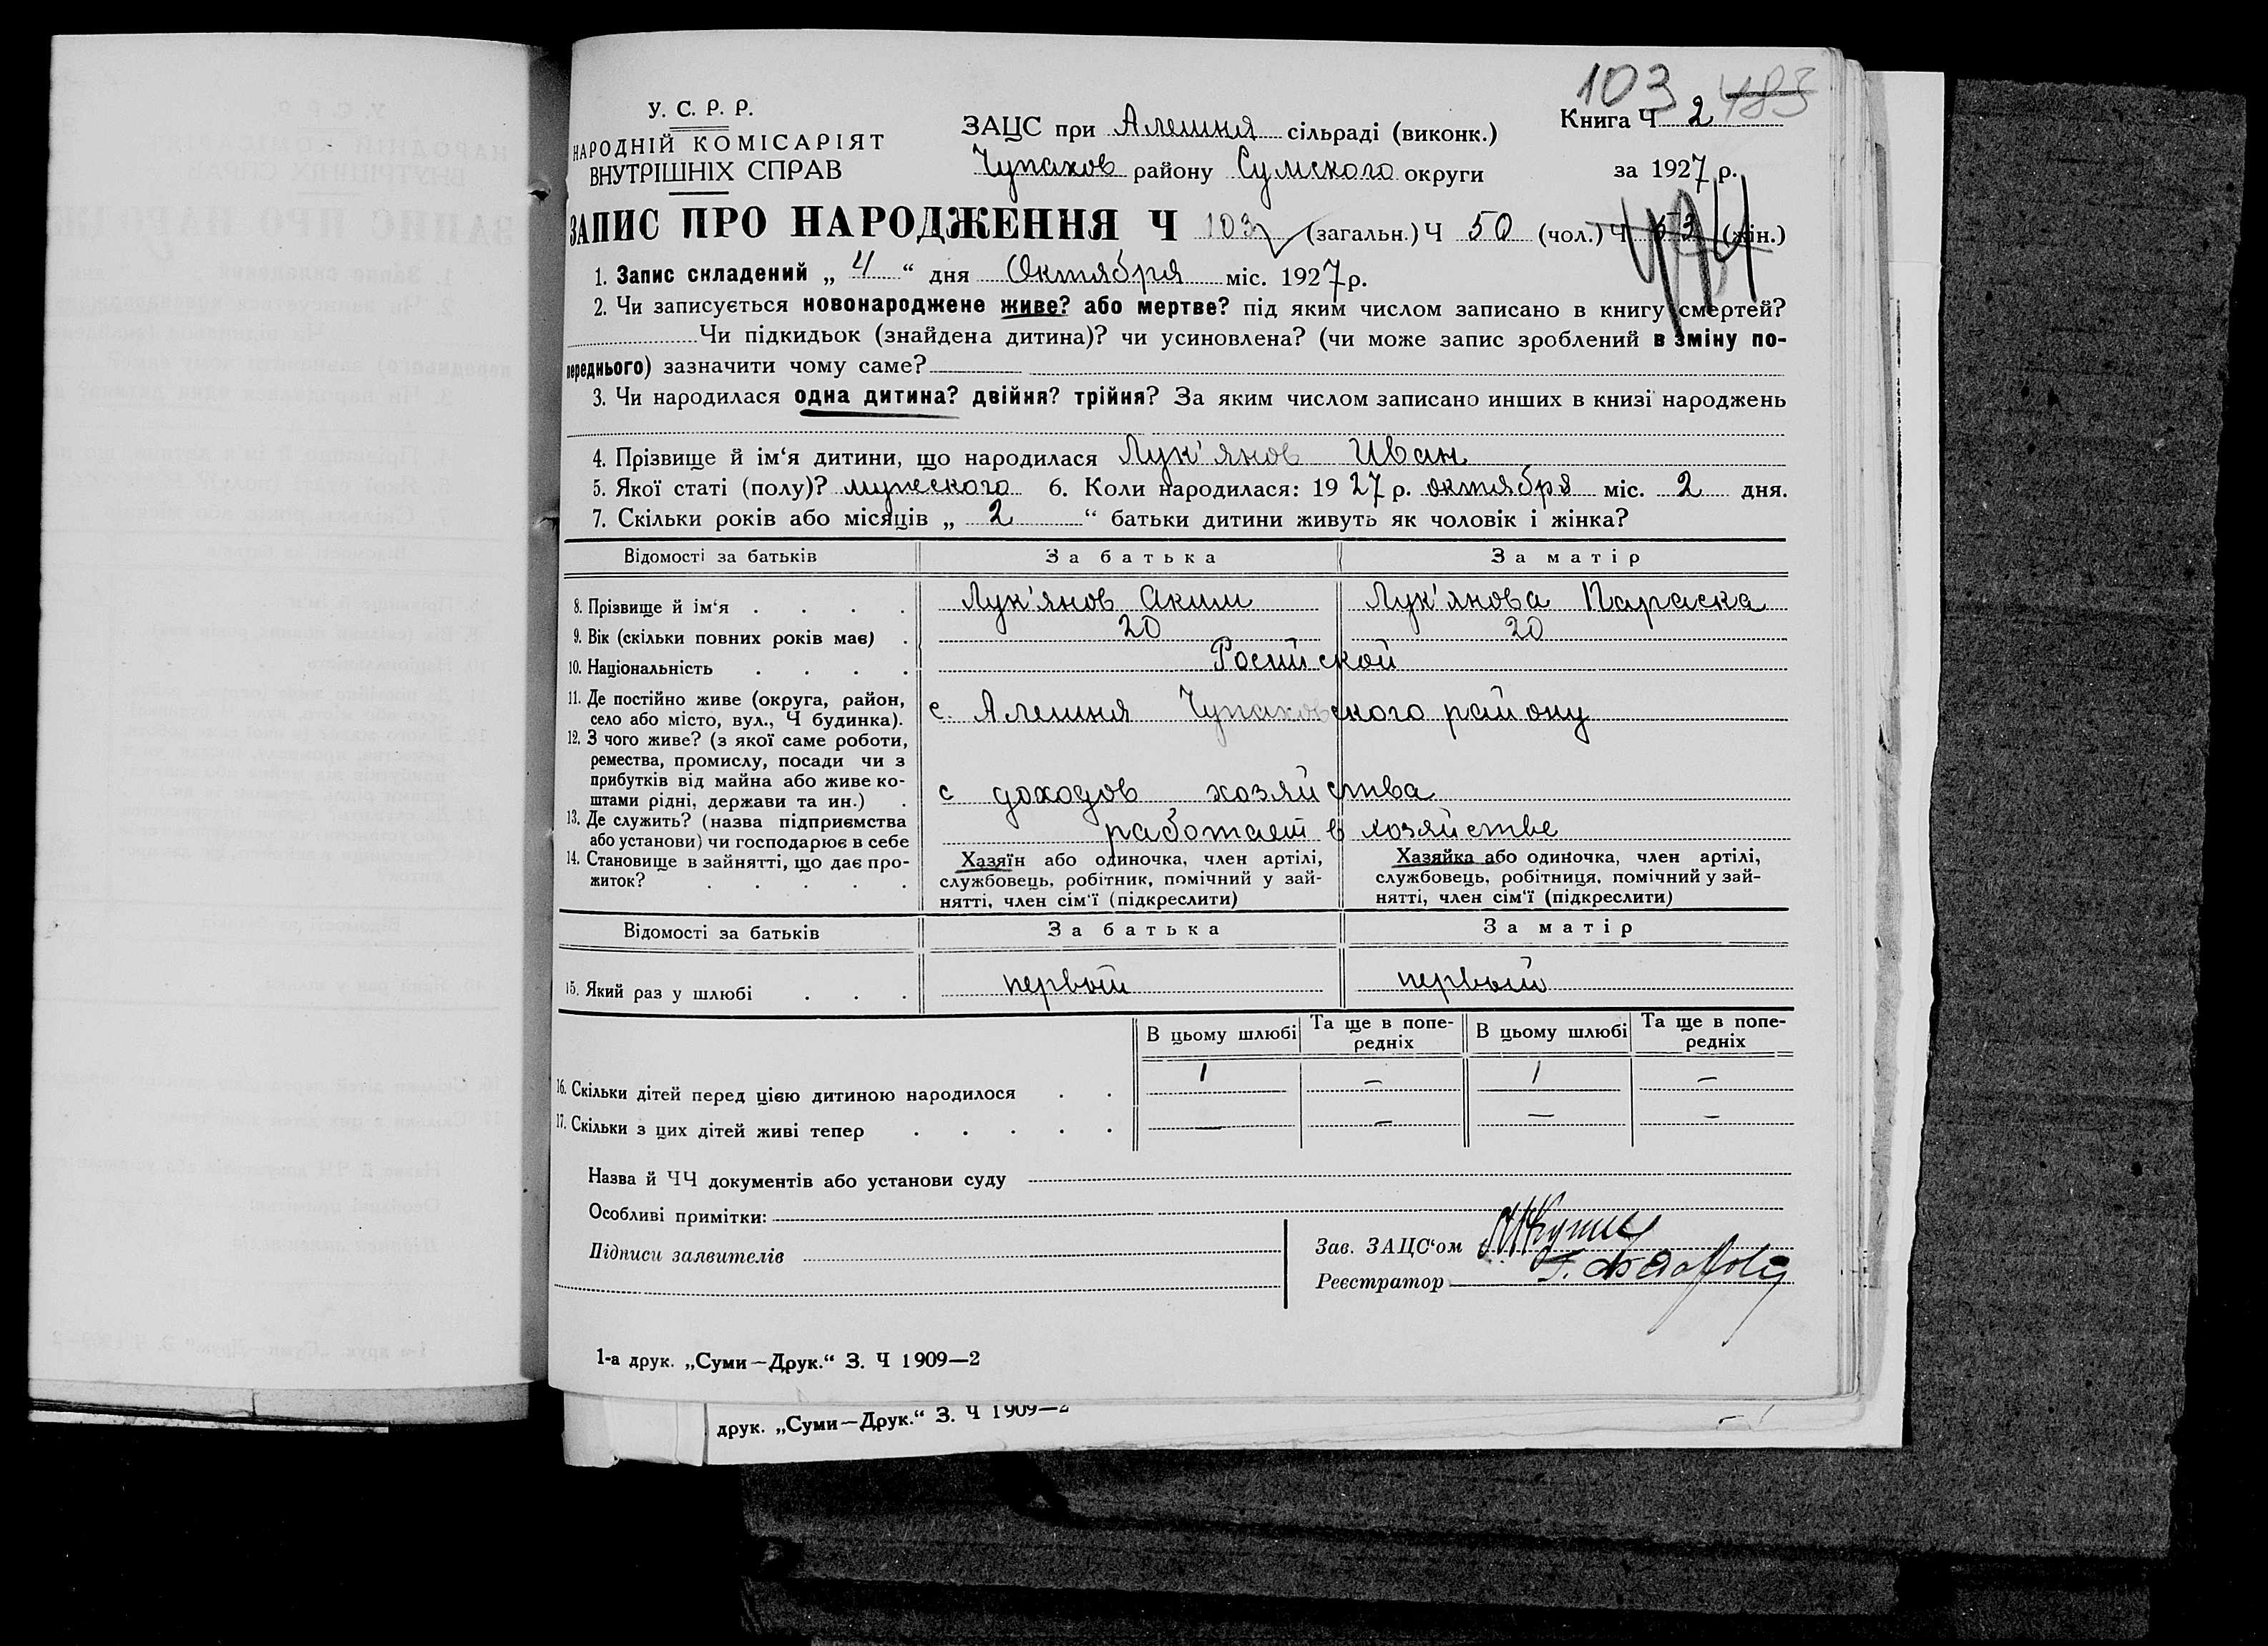 103 483
У. С. Р. Р.
НАРОДНІЙ КОМІСАРІЯТ
ВНУТРІШНІХ СПРАВ
ЗАЦС при Алешня сільраді (виконк.)
Чупахов району Сумского округи
Книга Ч 2
за 1927 р.
ЗАПИС ПРО НАРОДЖЕННЯ Ч 103 (загальн.) Ч 50 (чол.) Ч 53 (жін.)
1. Запис складений „ 4 “ дня Октября міс. 1927 р.
2. Чи записується новонароджене живе? або мертве? під яким числом записано в книгу смертей?
Чи підкидьок (знайдена дитина)? чи усиновлена? (чи може запис зроблений в зміну по-
переднього) зазначити чому саме?
3. Чи народилася одна дитина? двійня? трійня? За яким числом записано инших в книзі народжень
4. Прізвище й ім‘я дитини, що народилася Лук'янов Иван
5. Якої статі (полу)? мужеского 6. Коли народилася: 19 27 р. октября міс. 2 дня.
7. Скільки років або місяців „ 2 “ батьки дитини живуть як чоловік і жінка?
Відомості за батьків За батька За матір
8. Прізвище й ім‘я . . . . Лук'янов Аким Лук'янова Параска
9. Вік (скільки повних років має) . 20 20
10. Національність . . . . Росийской
11. Де постійно живе (округа, район,
село або місто, вул., Ч будинка). с. Алешня Чупаховского району
12. З чого живе? (з якої саме роботи,
ремества, промислу, посади чи з
прибутків від майна або живе ко-
штами рідні, держави та ин.) . с доходов хозяйства
13. Де служить? (назва підприємства
або установи) чи господарює в себе работает в хозяйстве
14. Становище в зайнятті, що дає про-
житок? . . . . .
Хазяїн або одиночка, член артілі,
службовець, робітник, помічний у зай-
нятті, член сім‘ї (підкреслити)
Хазяйка або одиночка, член артілі,
службовець, робітниця, помічний у зай-
нятті, член сім‘ї (підкреслити)
Відомості за батьків За батька За матір
15. Який раз у шлюбі . . . первый первый
В цьому шлюбі Та ще в попе-
редніх В цьому шлюбі Та ще в попе-
редніх
16. Скільки дітей перед цією дитиною народилося . . 1 — 1 —
17. Скільки з цих дітей живі тепер . . . . . — — — —
Назва й ЧЧ документів або установи суду
Особливі примітки:
Підписи заявителів
Зав. ЗАЦС‘ом
Реєстратор
1-а друк. „Суми—Друк.“ З. Ч 1909—2
друк. „Суми—Друк.“ З. Ч 1909—2